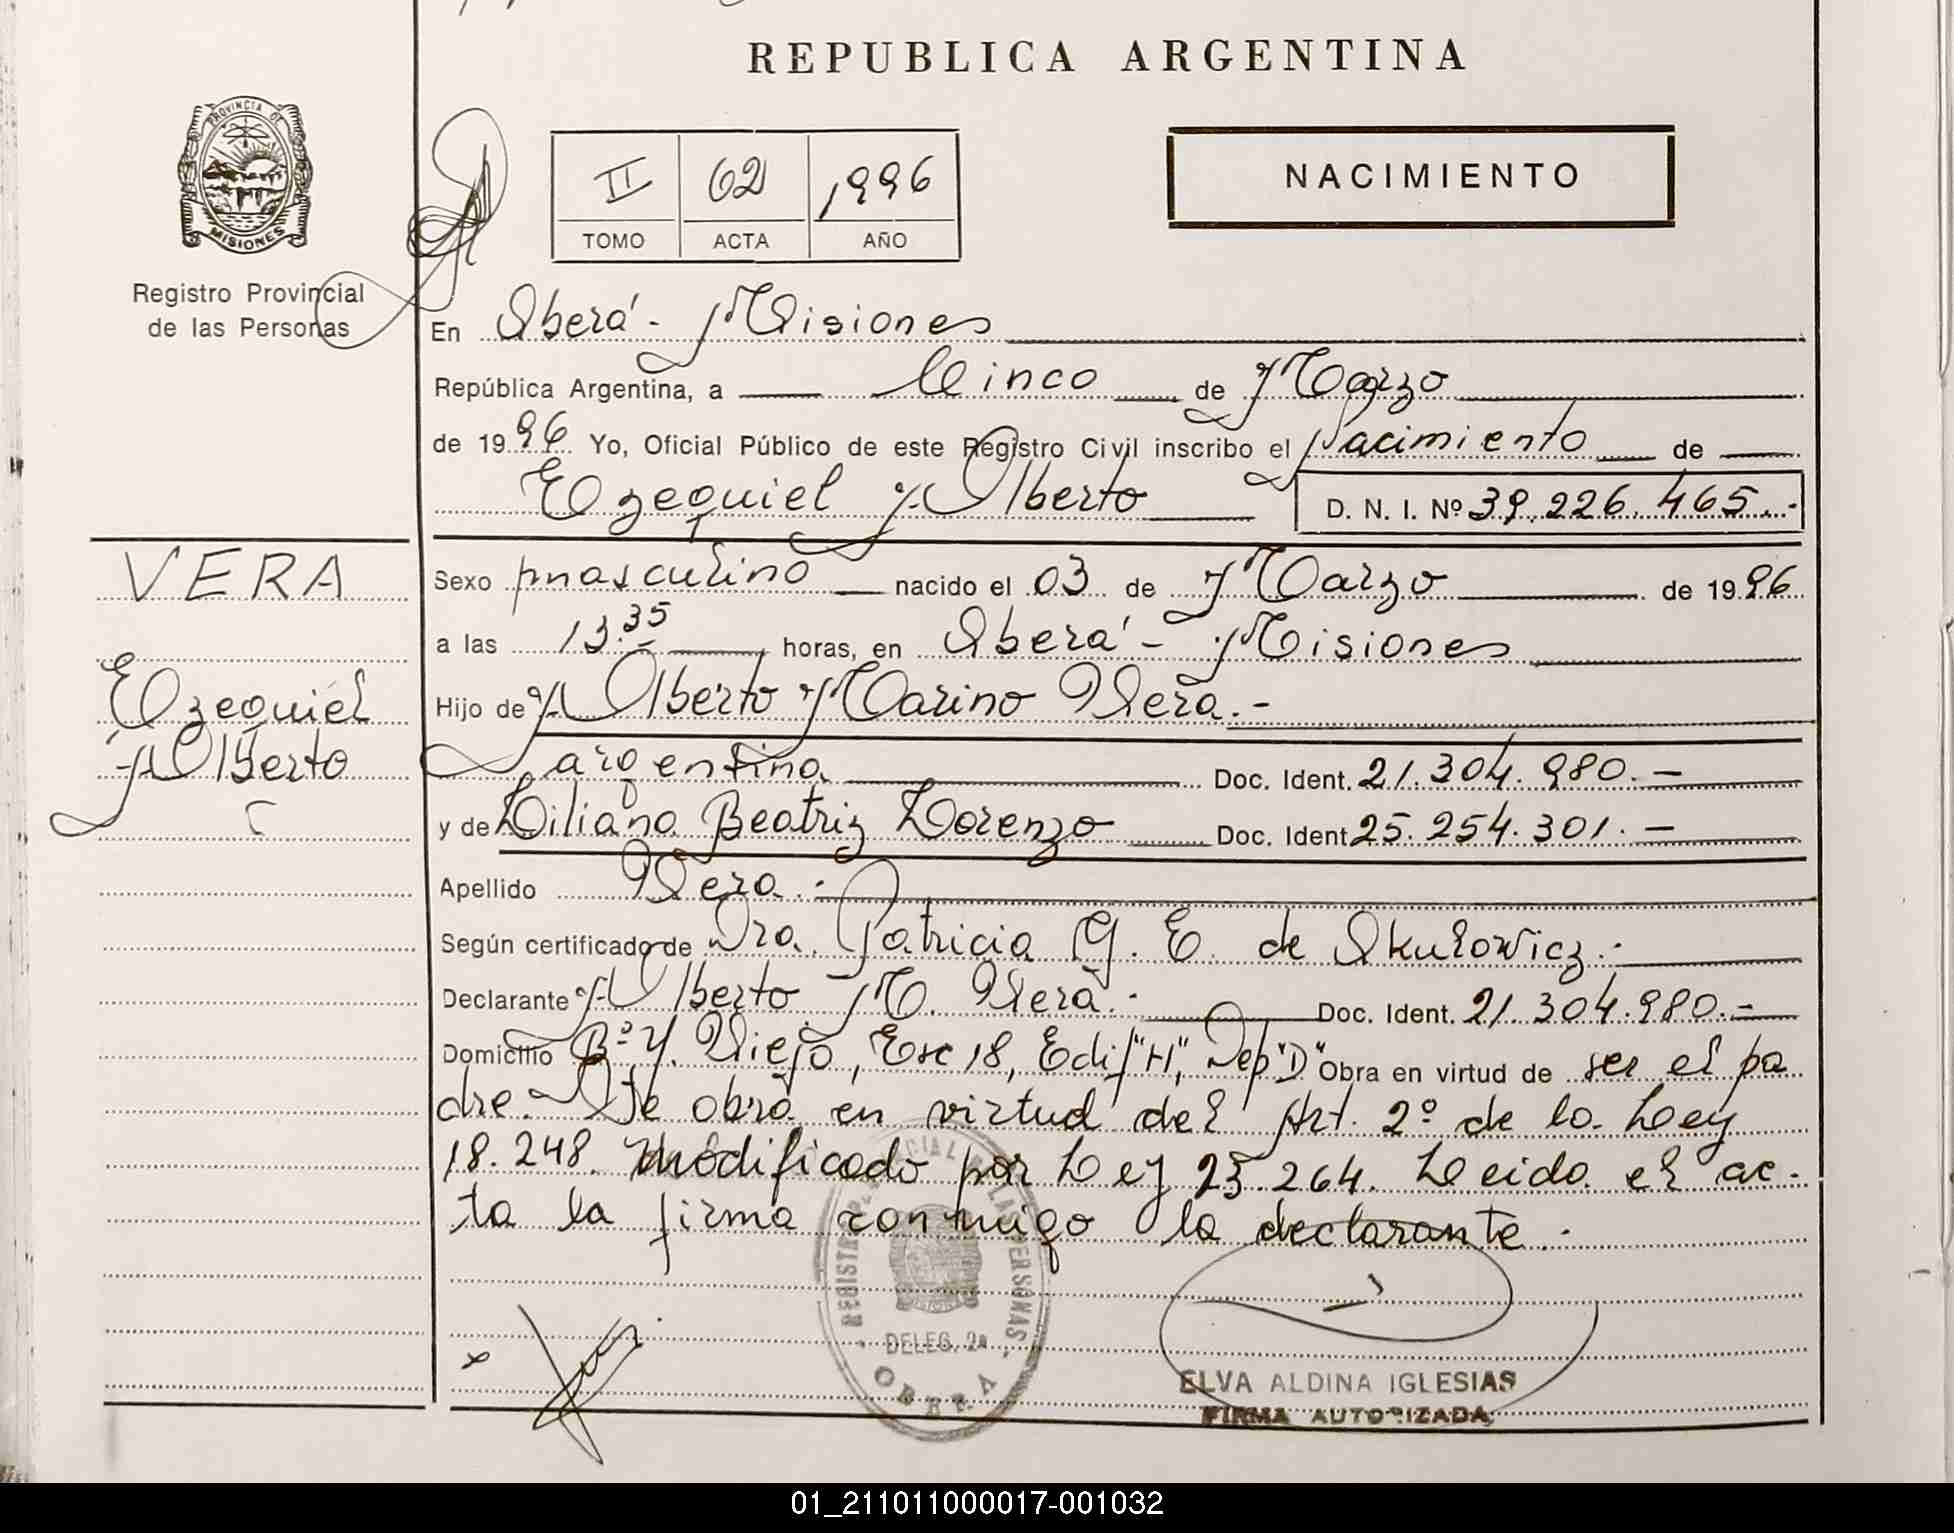 REPUBLICA ARGENTINA
PROVINCIA DE
MISIONES
Registro Provincial
de las Personas
II 62 1996
TOMO ACTA AÑO
NACIMIENTO
En Oberá - Misiones
República Argentina, a Cinco de Marzo
de 1996 Yo, Oficial Público de este Registro Civil inscribo el Nacimiento de
Ezequiel Alberto D. N. I. Nº 39.226.465.-
VERA
Ezequiel
Alberto
Sexo masculino nacido el 03 de Marzo de 1996
a las 13.35 horas, en Oberá - Misiones
Hijo de Alberto Marino Vera.-
argentina Doc. Ident. 21.304.980.-
y de Liliana Beatriz Lorenzo Doc. Ident 25.254.301.-
Apellido Vera.-
Según certificado de Dra. Patricia G. E. de Skulowicz.-
Declarante Alberto M. Vera.- Doc. Ident. 21.304.980.-
Domicilio Bº Y. Viejo, Esc 18, Edif "H", Dep "D" Obra en virtud de ser el pa
dre.- Se obra en virtud del Art. 2º de la Ley
18.248. Modificado por Ley 23.264. Leida el ac-
ta la firma conmigo la declarante.-
REGISTRO PROVINCIAL DE LAS PERSONAS
DELEG. 2a
OBERA
ELVA ALDINA IGLESIAS
FIRMA AUTORIZADA
01_211011000017-001032